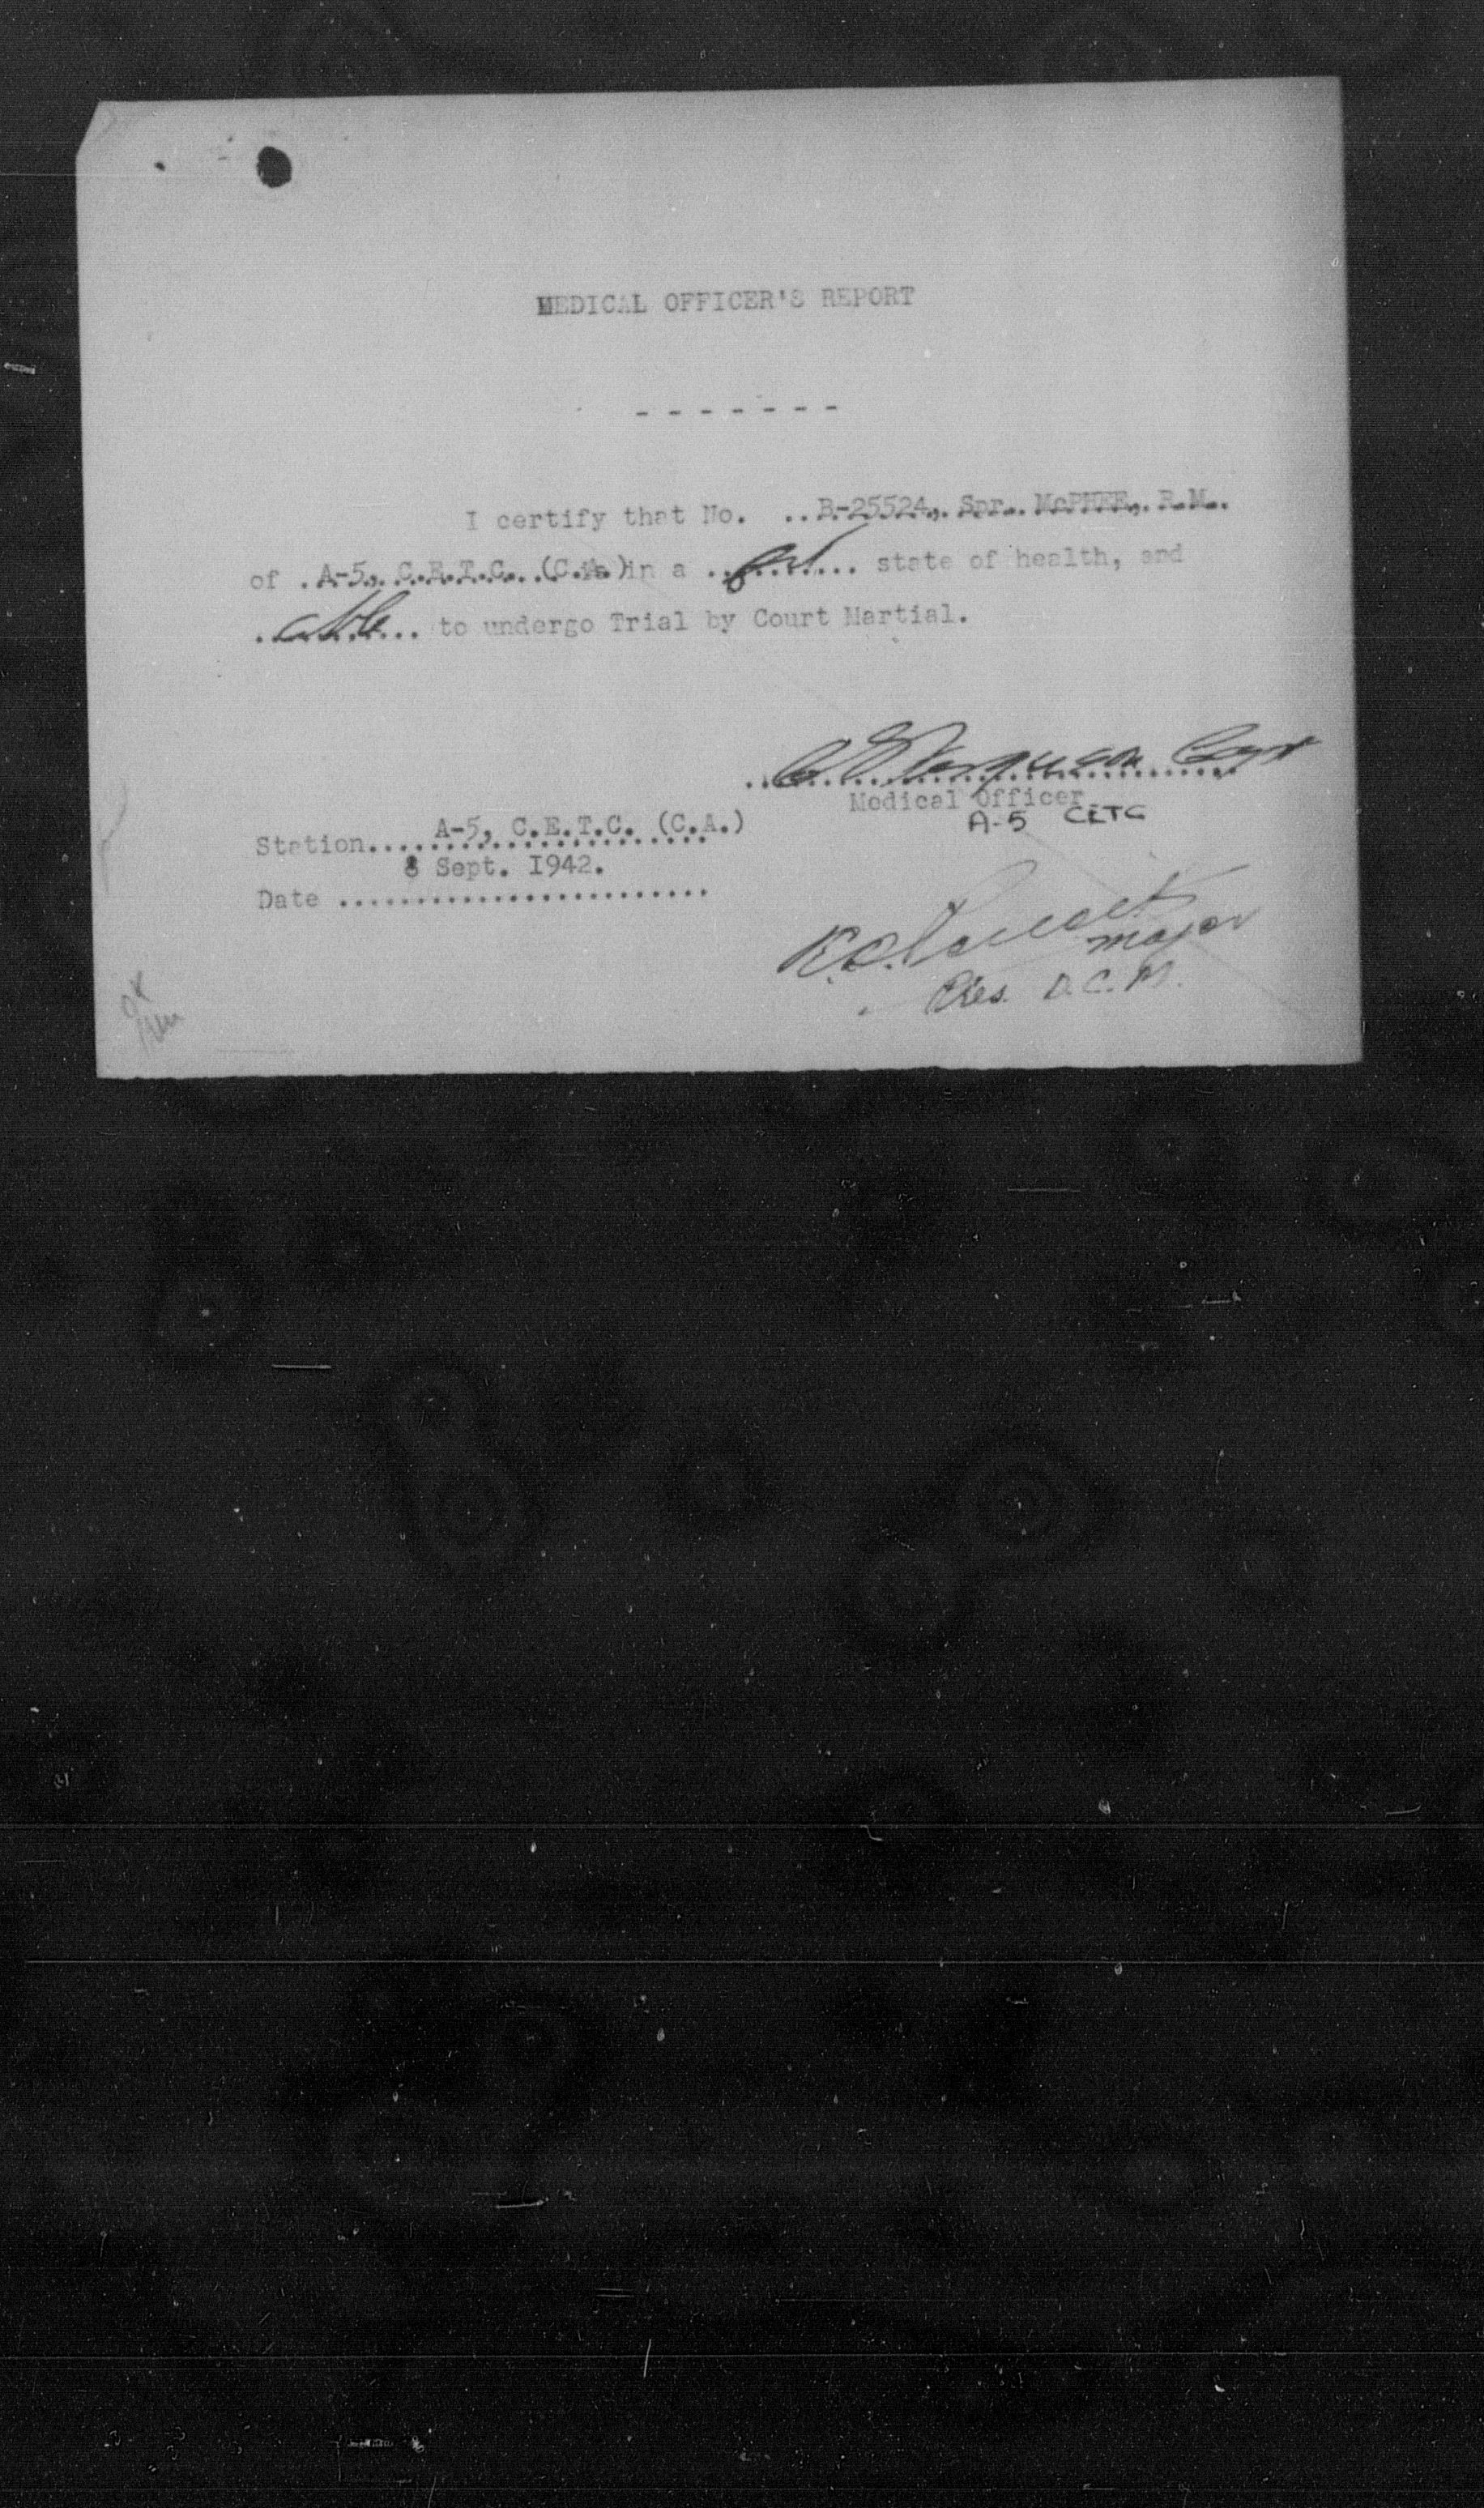 MEDICAL OFFICER'S REPORT
- - - - - - -
I certify that No. ..B-25524, Spr. McPHEE, R.M..
of .A-5, C.E.T.C. (C.A.) is in a ........ state of health, and
.able... to undergo Trial by Court Martial.
Ferguson Capt
Medical Officer
A-5 CETC
Station....A-5, C.E.T.C. (C.A.)
8 Sept. 1942.
Date ........................
Major
Pres. D.C.M.
OK